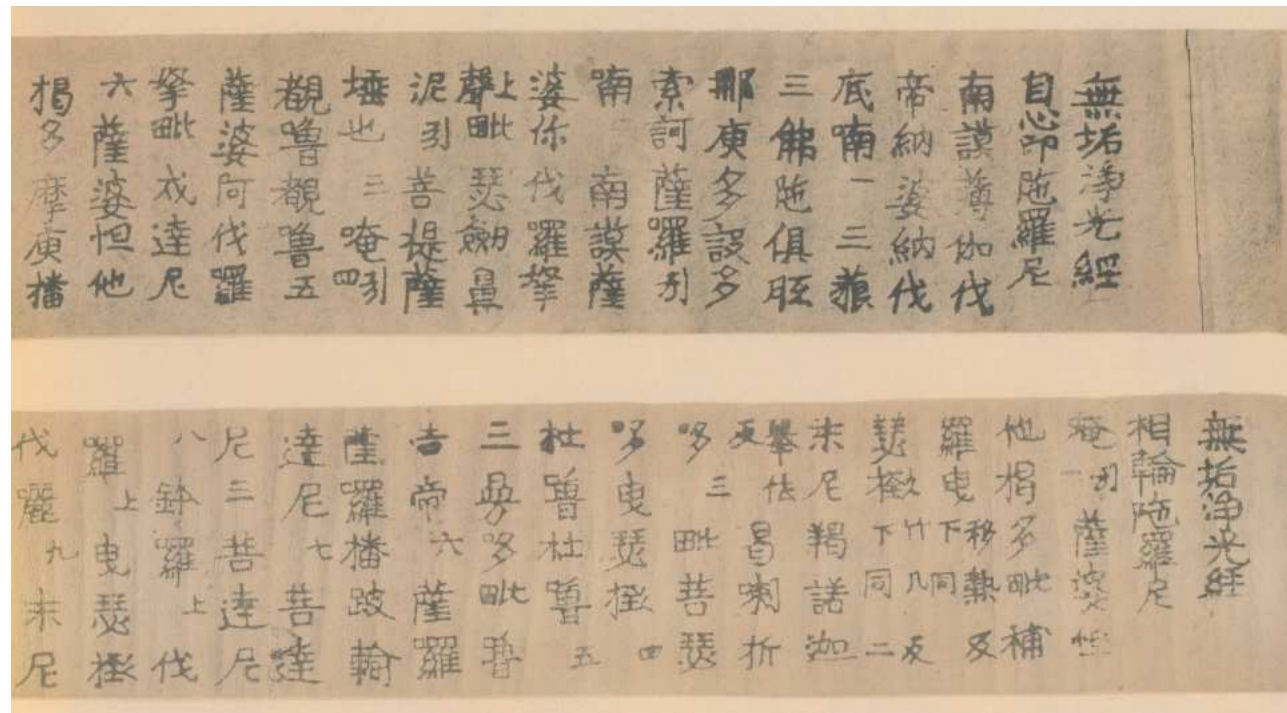 無垢淨光經
自心印陁羅尼
南謨薄伽伐
帝納婆納伐
底喃一三藐
三佛陁俱胝
那庾多設多
索訶薩羅引
喃 南謨薩
婆你伐羅拏
毗瑟劒鼻聲上
泥引菩提薩
埵也三唵引四
覩嚕覩嚕五
薩婆阿伐羅
拏毗戍達尼
六薩婆怛他
揭多摩庾播
無垢淨光經
相輪陁羅尼
唵引一薩婆怛
他揭多毗補
羅曳移熱反下同
瑟 竹几反下同二
末尼羯諾迦
舉佉反曷喇折
哆三毗菩瑟
哆曳瑟 四
杜嚕杜嚕五
三曷哆毗魯
吉帝六薩羅
薩羅播跛輸
達尼七菩達
尼三菩達尼
八鉢羅上伐
羅上曳瑟
伐麗九末尼